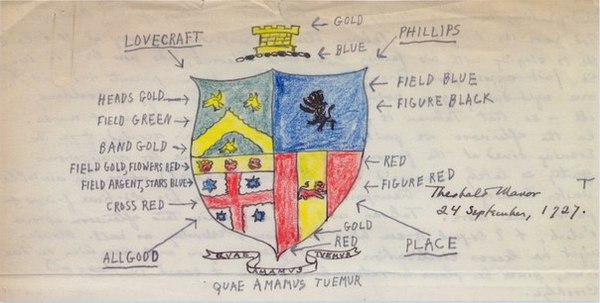 LOVECRAFT
GOLD
PHILLIPS
BLUE
HEADS GOLD
FIELD GREEN
BAND GOLD
FIELD GOLD, FLOWERS RED
FIELD ARGENT, STARS BLUE
CROSS RED
ALLGOOD
FIELD BLUE
FIGURE BLACK
RED
FIGURE RED
Theobald Manor
24 September, 1727.
T
GOLD
RED
PLACE
QUAE
AMAMUS
TUEMUR
QUAE AMAMUS TUEMUR